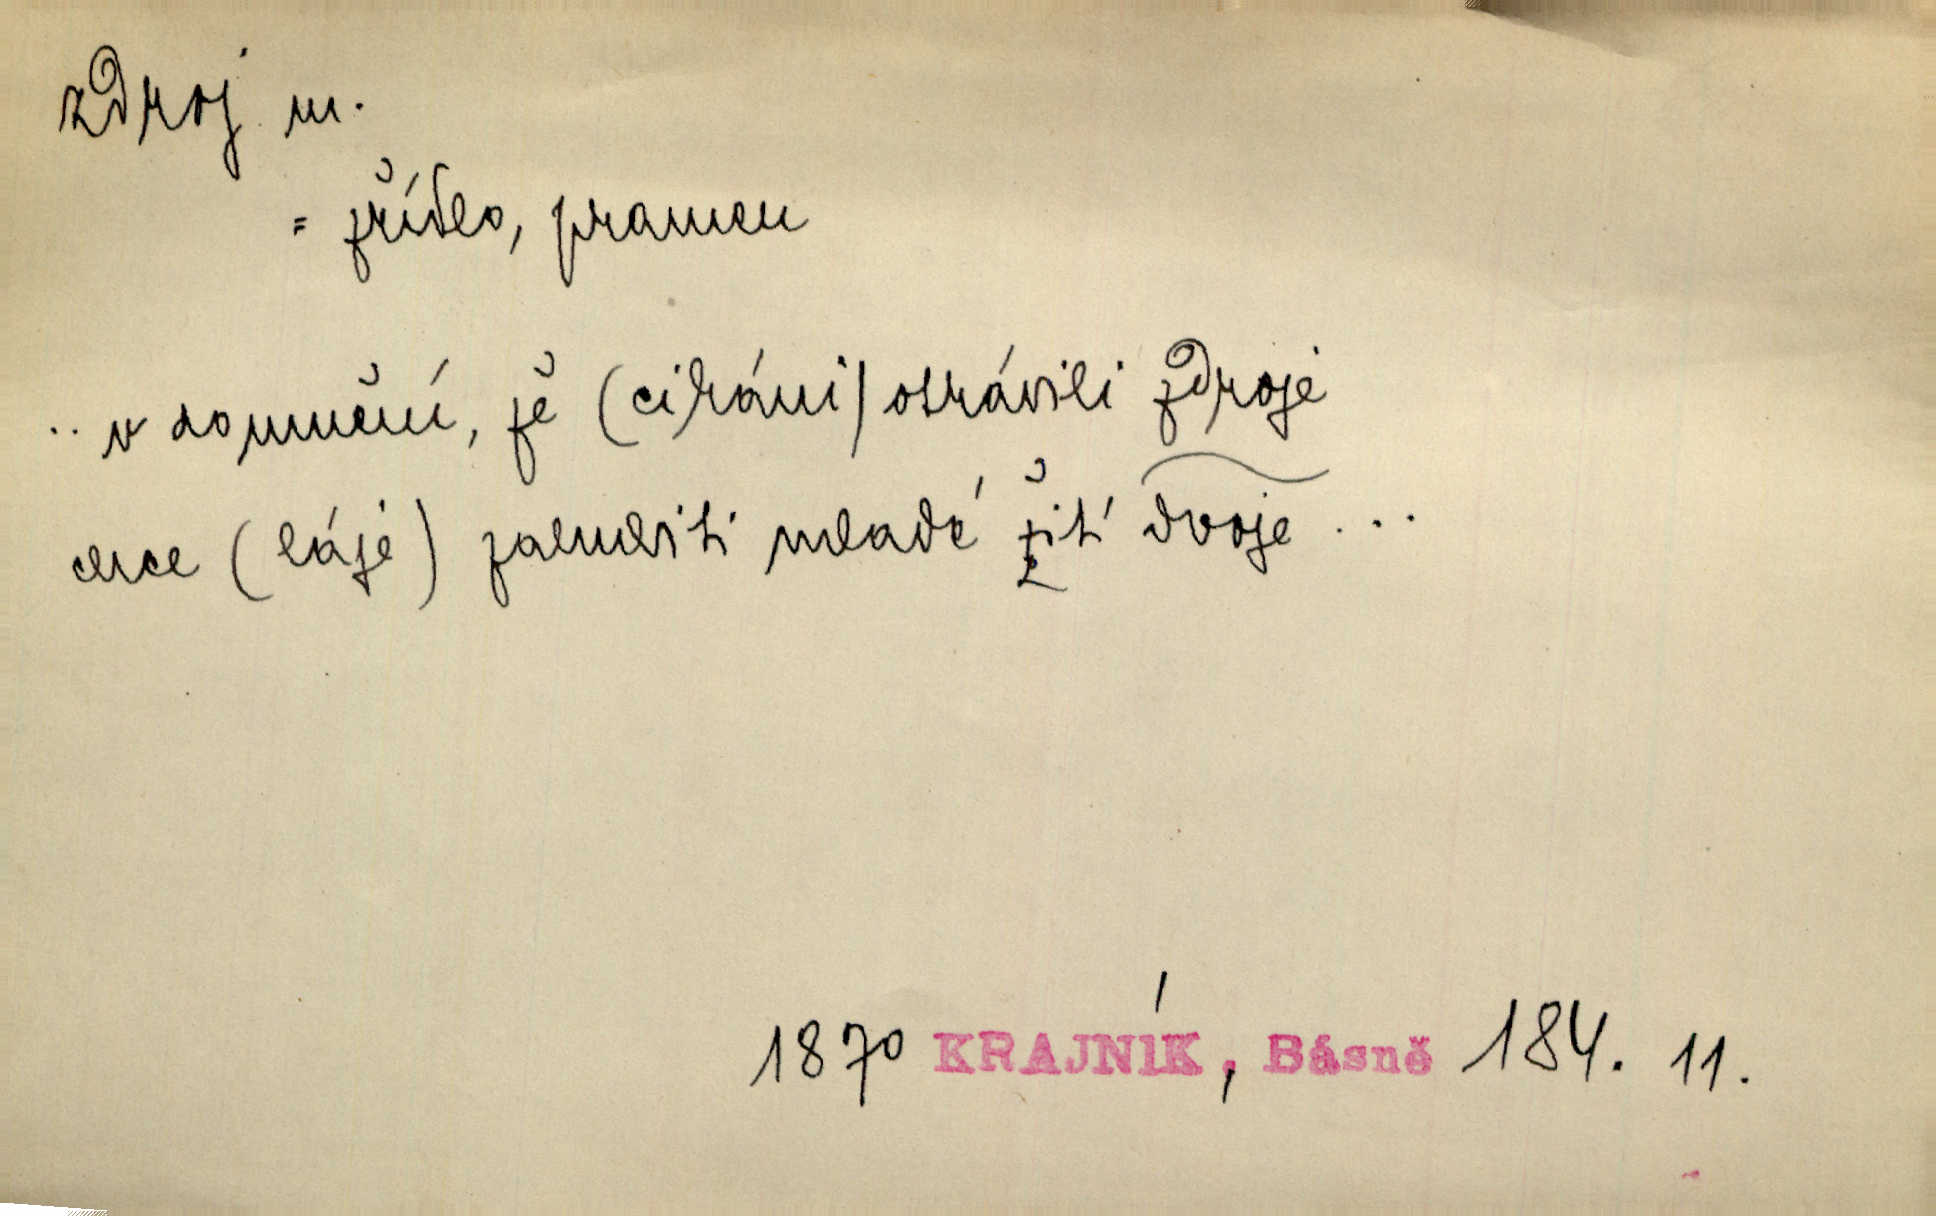 zdroj m.
= zřídlo, pramen
.. v domnění, že (cikáni) otrávili zdroje
chce (láje) zahubiti mladé žití dvoje ...
1870 KRAJNÍK, Básně 184. 11.